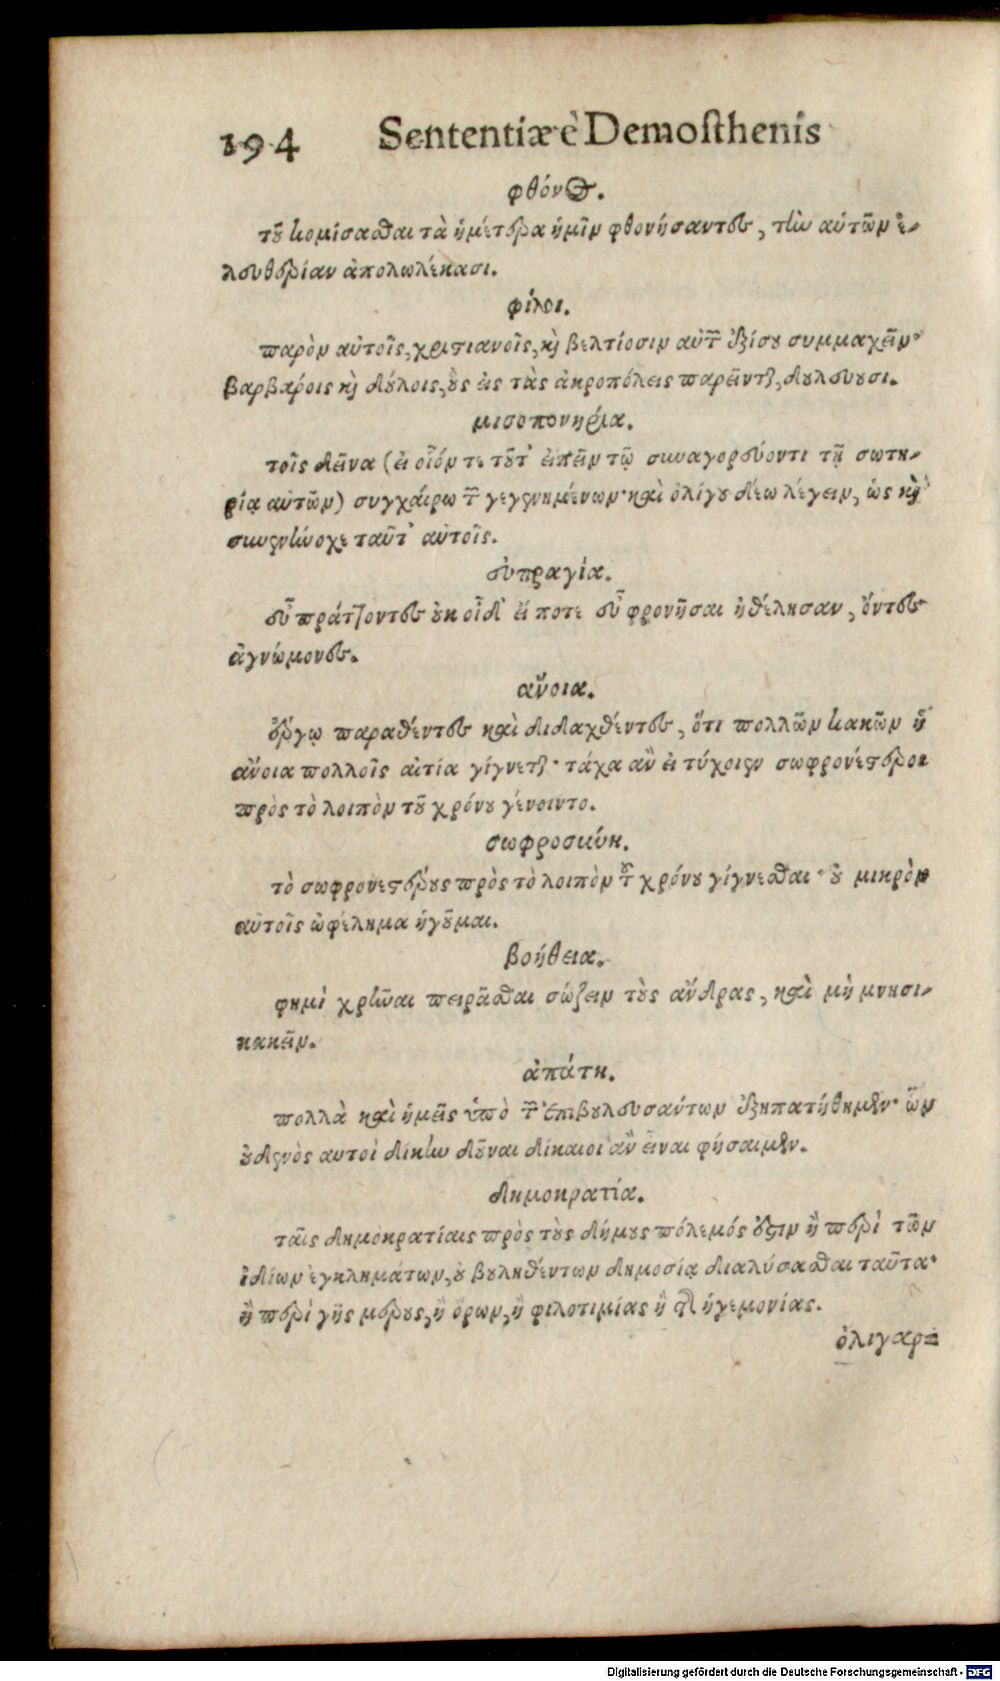 194 Sententiæ è Demosthenis
φθόνος.
τοῦ κομίσασθαι τὰ ἡμέτερα ἡμῖν φθονήσαντες, τὴν αὑτῶν ἐ-
λευθερίαν ἀπολωλέκασι.
φίλοι.
παρὸν αὐτοῖς, χριστιανοῖς, καὶ βελτίοσιν αὐτῶν ἐξίσου συμμαχεῖν·
βαρβάροις καὶ δούλοις, οὓς εἰς τὰς ἀκροπόλεις παρεῖνται, δουλεύουσι.
μισοπονηρία.
τοῖς δεῖνα (εἰ οἷόν τε τοῦτ' εἰπεῖν τῷ συναγορεύοντι τῇ σωτη-
ρίᾳ αὐτῶν) συγχαίρω τῶν γεγενημένων· καὶ ὀλίγου δέω λέγειν, ὡς καὶ
συνενήνοχε ταῦτ' αὐτοῖς.
εὐπραγία.
εὖ πράττοντες οὐκ οἶδ' εἴ ποτε εὖ φρονῆσαι ἠθέλησαν, ὄντες
ἀγνώμονες.
ἄνοια.
ἔργῳ παραθέντες καὶ διδαχθέντες, ὅτι πολλῶν κακῶν ἡ
ἄνοια πολλοῖς αἰτία γίγνεται· τάχα ἂν εἰ τύχοιεν σωφρονέστεροι
πρὸς τὸ λοιπὸν τοῦ χρόνου γένοιντο.
σωφροσύνη.
τὸ σωφρονεστέρους πρὸς τὸ λοιπὸν τοῦ χρόνου γίγνεσθαι· οὐ μικρὸν
αὐτοῖς ὠφέλημα ἡγοῦμαι.
βοήθεια.
φημὶ χρῆναι πειρᾶσθαι σώζειν τοὺς ἄνδρας, καὶ μὴ μνησι-
κακεῖν.
ἀπάτη.
πολλὰ καὶ ἡμεῖς ὑπὸ τῶν ἐπιβουλευσάντων ἐξηπατήθημεν· ὧν
οὐδενὸς αυτοὶ δίκην δοῦναι δίκαιοι ἂν εἶναι φήσαιμεν.
δημοκρατία.
ταῖς δημοκρατίαις πρὸς τοὺς δήμους πόλεμός ἐστιν ἢ περὶ τῶν
ἰδίων ἐγκλημάτων, οὐ βουληθέντων δημοσίᾳ διαλύσασθαι ταῦτα·
ἢ περὶ γῆς μέρους, ἢ ὅρων, ἢ φιλοτιμίας ἢ τῆς ἡγεμονίας.
ὀλιγαρ=
Digitalisierung gefördert durch die Deutsche Forschungsgemeinschaft - DFG